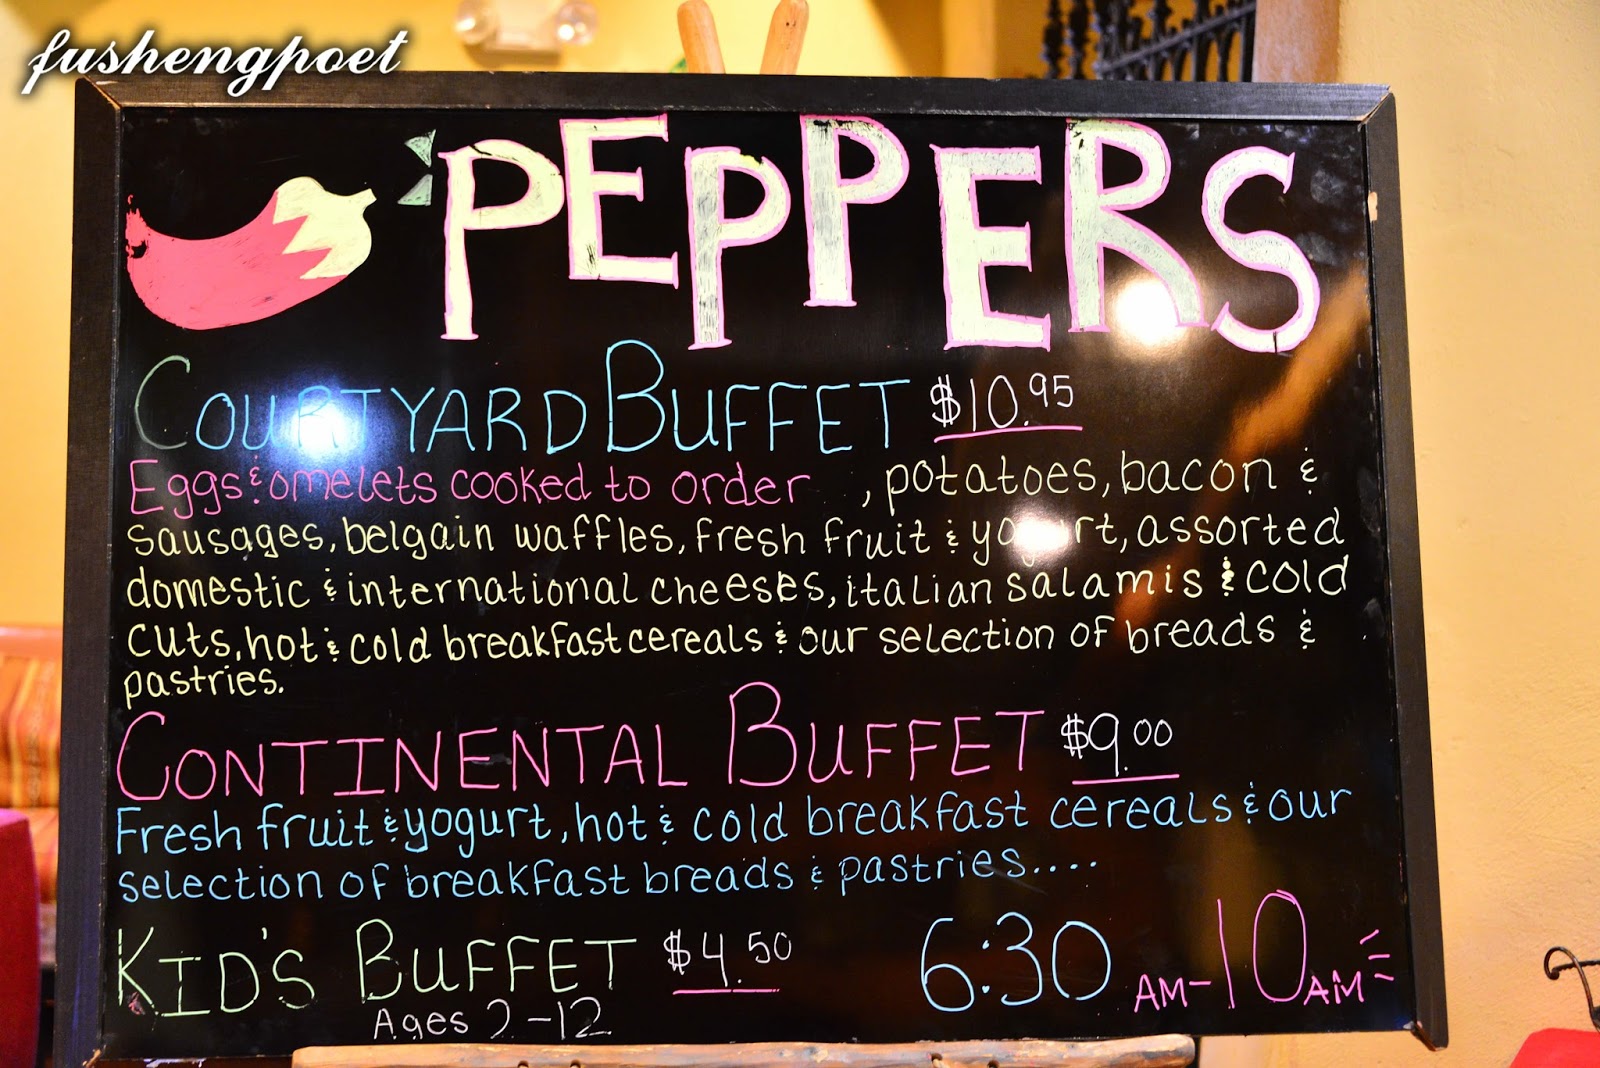 fushengpoet
PEPPERS
COURTYARD BUFFET $10.95
Eggs & omelets cooked to order , potatoes, bacon &
sausages, belgain waffles, fresh fruit & yogurt, assorted
domestic & international cheeses, italian salamis & cold
cuts, hot & cold breakfast cereals & our selection of breads &
pastries.
CONTINENTAL BUFFET $9.00
Fresh fruit & yogurt, hot & cold breakfast cereals & our
selection of breakfast breads & pastries....
KID'S BUFFET $4.50 6:30 AM-10 AM
Ages 2-12